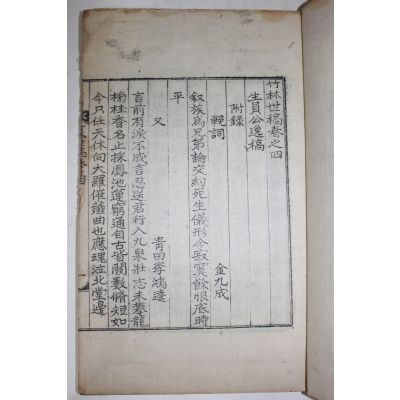 竹林世稿卷之四
生員公逸稿
附錄
輓詞
金九成
叙族爲兄弟論交約死生儀形今寂寞餘恨底時
平
又
青田李鴻逵
言前有淚不成言忍送君行入九泉壯志未攀龍
桂香名止採鳳池蓮窮通自古皆關數脩短如
今只任天休向大羅催薤曲也應魂泣北堂邊